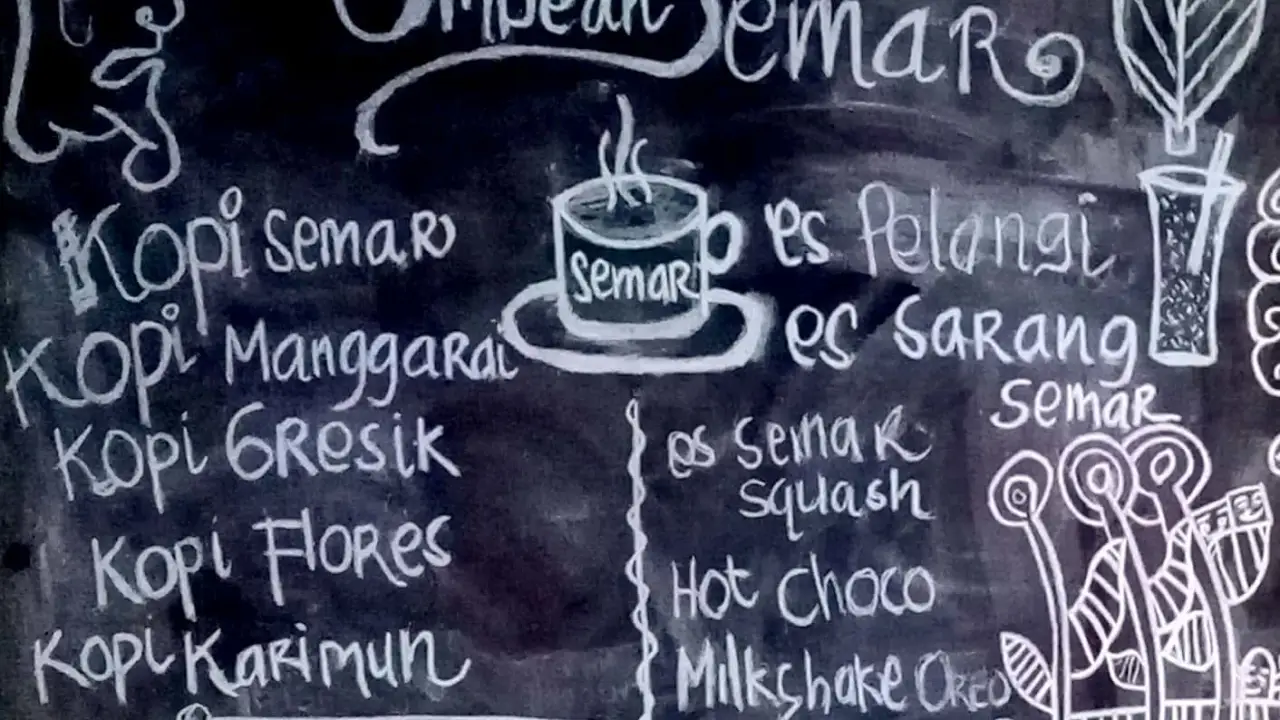 Umpean Semar
Kopi Semar
Kopi Manggarai
Kopi Gresik
Kopi Flores
Kopi Karimun
Semar
es Pelangi
es Sarang
Semar
es Semar
Squash
Hot Choco
Milkshake Oreo